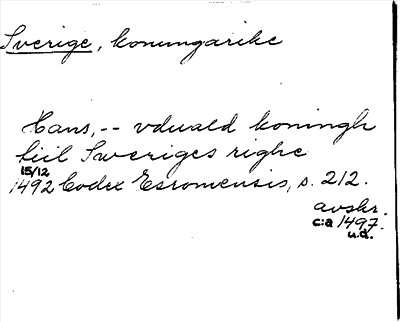 Sverige, konungarike
Hans, -- vduald koningh
tiil Sweriges righe
15/12
1492 Codex Esromensis, s. 212.
avskr.
c:a 1497.
u.d.